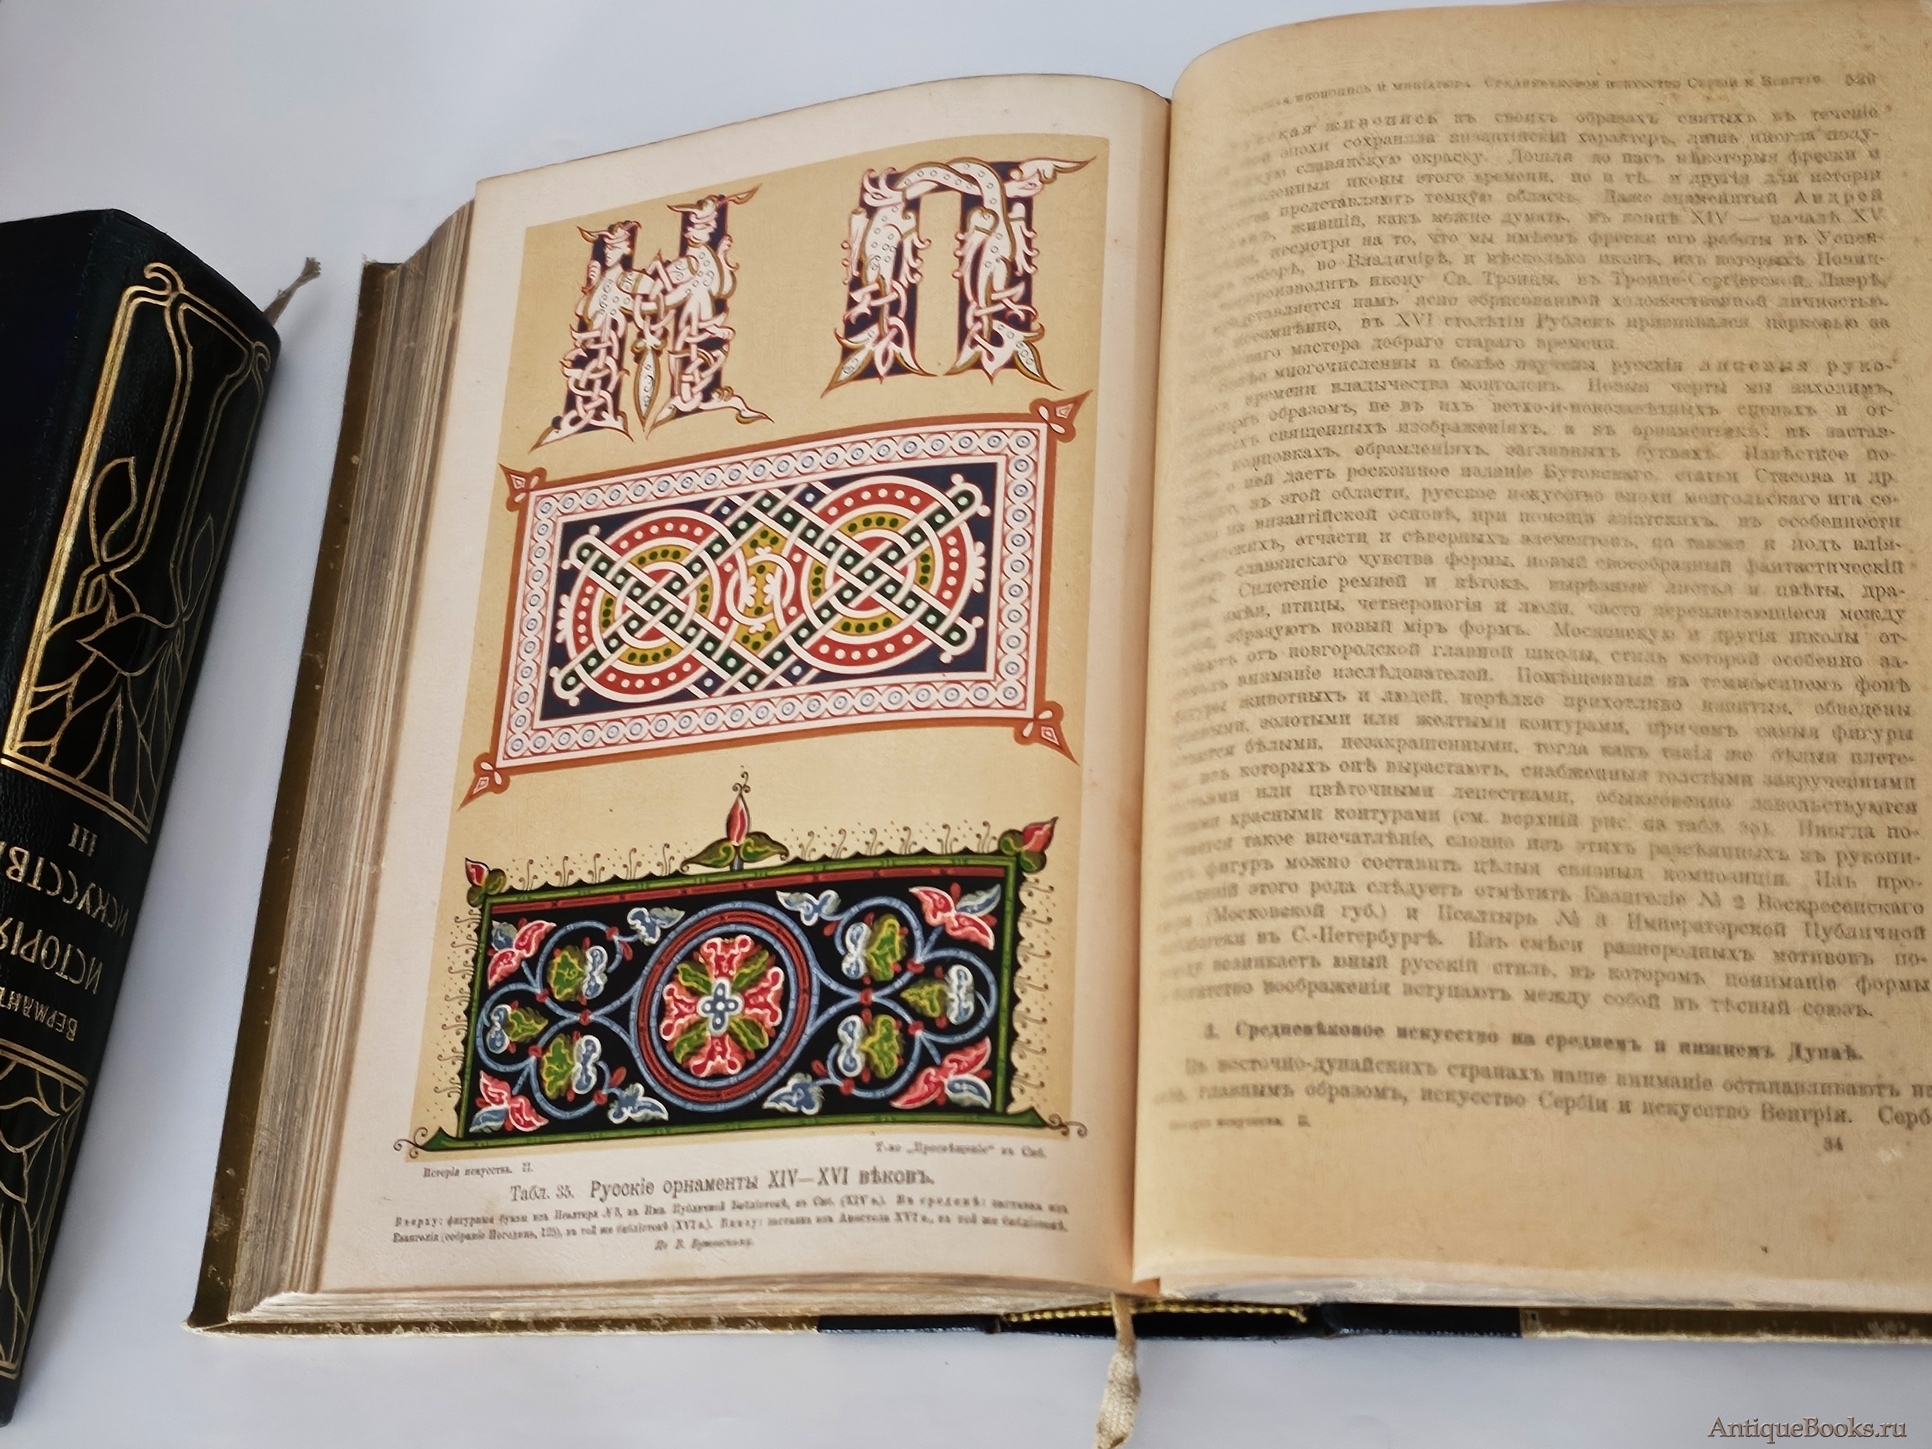 III
ИСКУССТВ
ИСТОРІЯ
ВЕРМАНЪ
Исторія искусства. II.
Т-во „Просвѣщеніе“ въ Спб.
Табл. 35. Русскіе орнаменты XIV—XVI вѣковъ.
Вверху: фигурныя буквы изъ Псалтыря №3, въ Имп. Публичной Библіотекѣ, въ Спб. (XIV в.). Въ срединѣ: заставка изъ
Евангелія (собраніе Погодина, 125), въ той же библіотекѣ (XVI в.). Внизу: заставка изъ Апостола XVI в., въ той же библіотекѣ.
По В. Бутовскому.
иконопись и миніатюра. Средневѣковое искусство Сербіи и Венгріи. 529
живопись въ своихъ образахъ святыхъ въ теченіе
эпохи сохраняла византійскій характеръ, лишь иногда полу-
славянскую окраску. Дошли до насъ нѣкоторыя фрески и
иконы этого времени, но и тѣ, и другія для исторіи
представляютъ темную область. Даже знаменитый Андрей
жившій, какъ можно думать, въ концѣ XIV — началѣ XV
несмотря на то, что мы имѣемъ фрески его работы въ Успен-
соборѣ, во Владимірѣ, и нѣсколько иконъ, изъ которыхъ
икону Св. Троицы, въ Троице-Сергіевской Лаврѣ,
намъ ясно обрисованной художественной личностью.
въ XVI столѣтіи Рублевъ признавался церковью за
мастера добраго стараго времени.
многочисленны и болѣе изучены русскія лицевыя руко-
времени владычества монголовъ. Новыя черты мы находимъ,
образомъ, не въ ихъ ветхо-и-новозавѣтныхъ сценахъ и от-
священныхъ изображеніяхъ, а въ орнаментикѣ: въ застав-
концовкахъ, обрамленіяхъ, заглавныхъ буквахъ. Извѣстное по-
ней даетъ роскошное изданіе Бутовскаго, статьи Стасова и др.
въ этой области, русское искусство эпохи монгольскаго ига со-
на византійской основѣ, при помощи азіатскихъ, въ особенности
отчасти и сѣверныхъ элементовъ, но также и подъ влія-
славянскаго чувства формы, новый своеобразный фантастическій
Сплетеніе ремней и вѣтокъ, вырѣзные листья и цвѣты, дра-
змѣи, птицы, четвероногія и люди, часто переплетающіеся между
образуютъ новый міръ формъ. Московскую и другія школы от-
отъ новгородской главной школы, стиль которой особенно за-
вниманіе изслѣдователей. Помѣщенныя на темносинемъ фонѣ
фигуры животныхъ и людей, нерѣдко прихотливо извитыя, обведены
золотыми или желтыми контурами, причемъ самыя фигуры
бѣлыми, незакрашенными, тогда какъ такія же бѣлыя плете-
изъ которыхъ онѣ вырастаютъ, снабженныя толстыми закрученными
или цвѣточными лепестками, обыкновенно довольствуются
красными контурами (см. верхній рис. на табл. 35). Иногда по-
такое впечатлѣніе, словно изъ этихъ разсѣянныхъ въ рукопи-
фигуръ можно составить цѣлыя связныя композиціи. Изъ про-
этого рода слѣдуетъ отмѣтить Евангеліе № 2 Воскресенскаго
(Московской губ.) и Псалтырь № 3 Императорской Публичной
въ С.-Петербургѣ. Изъ смѣси разнородныхъ мотивовъ по-
возникаетъ юный русскій стиль, въ которомъ пониманіе формы
воображенія вступаютъ между собой въ тѣсный союзъ.
4. Средневѣковое искусство на среднемъ и нижнемъ Дунаѣ.
Въ восточно-дунайскихъ странахъ наше вниманіе останавливаютъ на
главнымъ образомъ, искусство Сербіи и искусство Венгріи. Серб-
искусства. II.
34
AntiqueBooks.ru